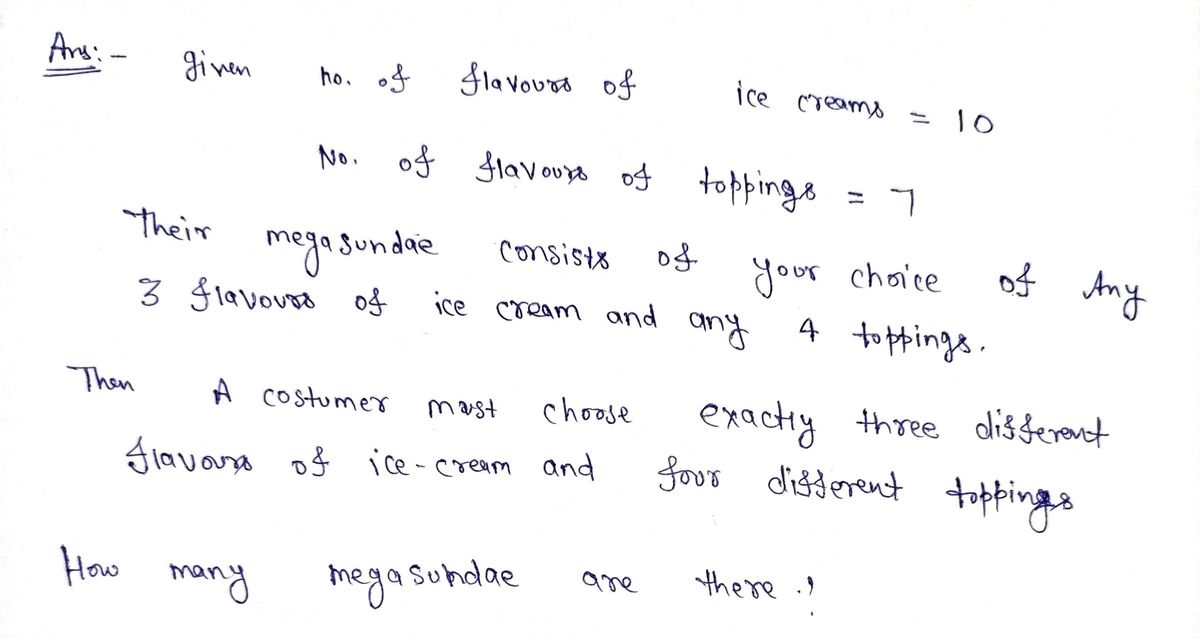 Ans:- given no. of flavours of ice creams = 10
No. of flavours of toppings = 7
Their megasundae consists of your choice of Any
3 flavours of ice cream and any 4 toppings.
Then A costumer must choose exactly three different
flavours of ice-cream and four different toppings
How many megasundae are there ?